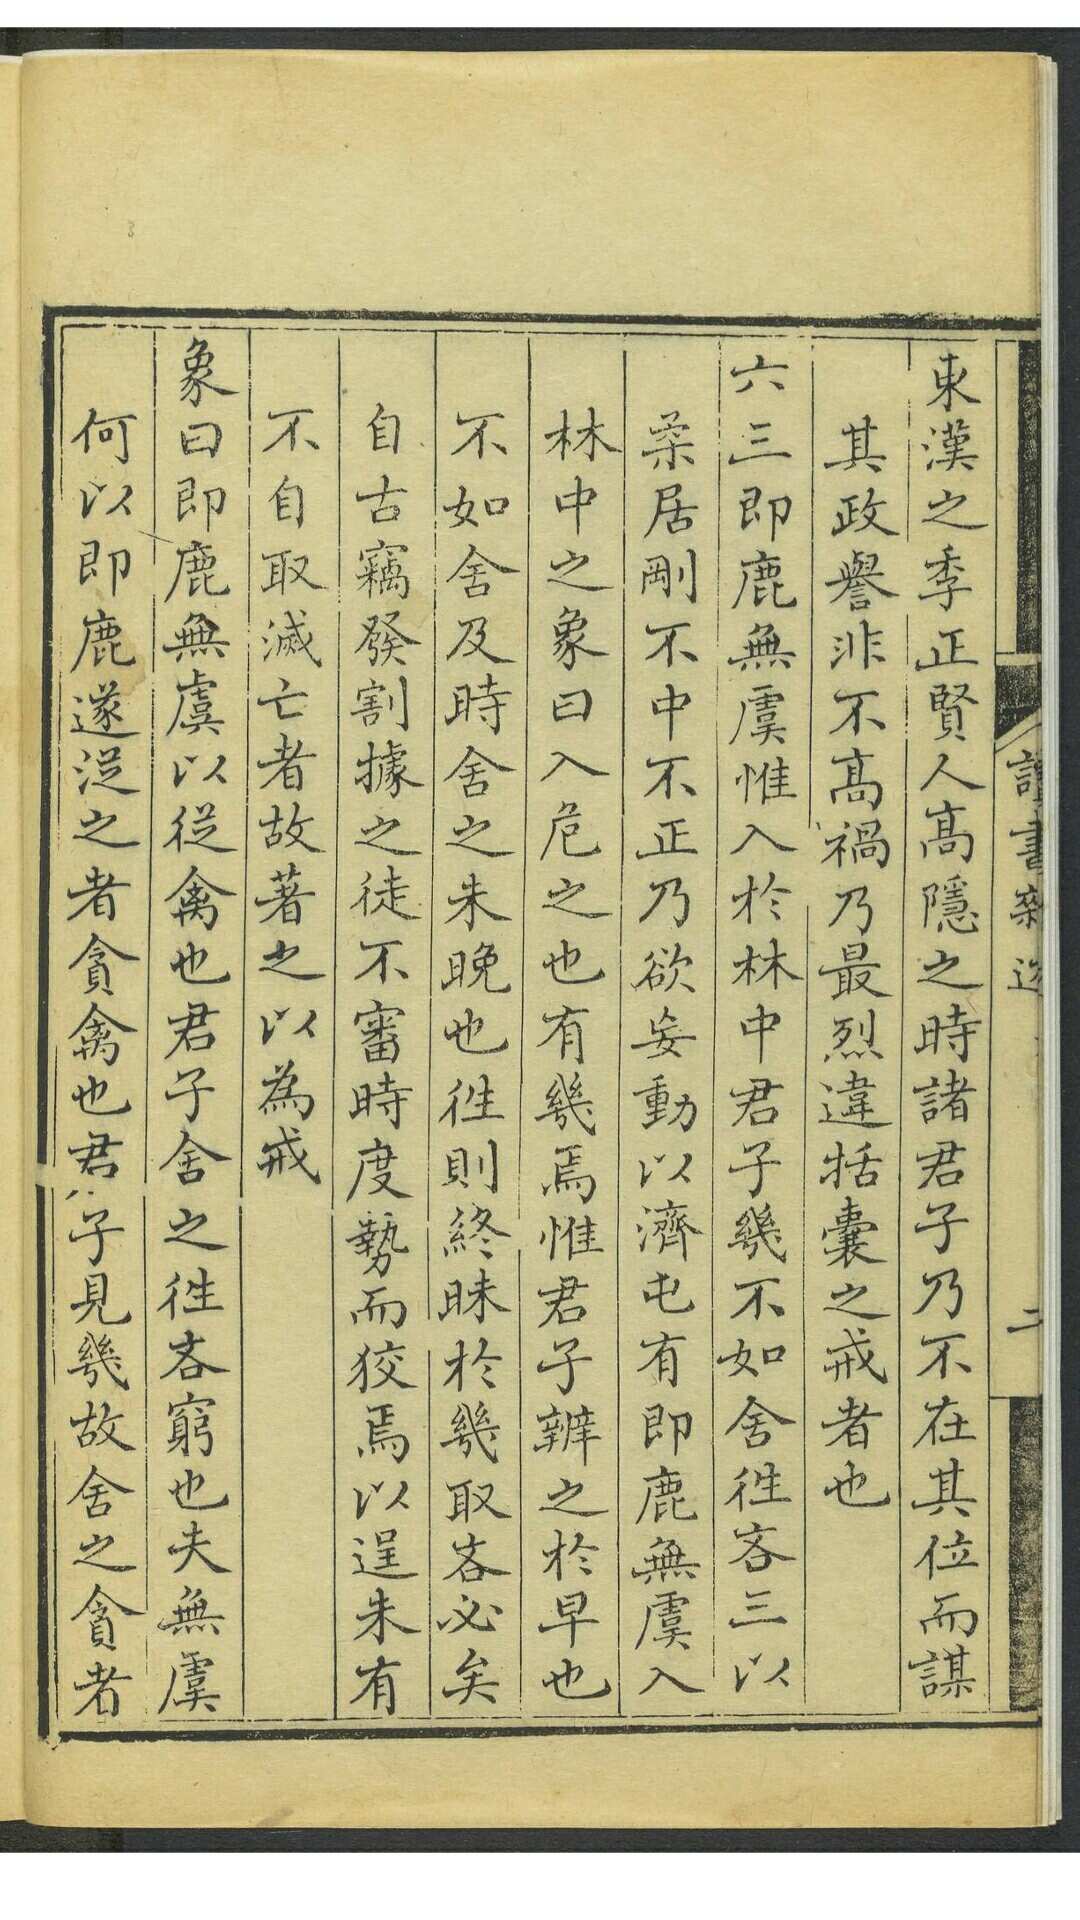 東漢之季正賢人高隱之時諸君子乃不在其位而謀
其政譽非不高禍乃最烈違括囊之戒者也
六三即鹿無虞惟入於林中君子幾不如舍徃吝三以
柔居剛不中不正乃欲妄動以濟屯有即鹿無虞入
林中之象曰入危之也有幾焉惟君子辨之於早也
不如舍及時舍之未晚也徃則終昧於幾取吝必矣
自古竊發割據之徒不審時度勢而狡焉以逞未有
不自取滅亡者故著之以為戒
象曰即鹿無虞以從禽也君子舍之徃吝窮也夫無虞
何以即鹿遂従之者貪禽也君子見幾故舍之貪者
讀書雜迻
二